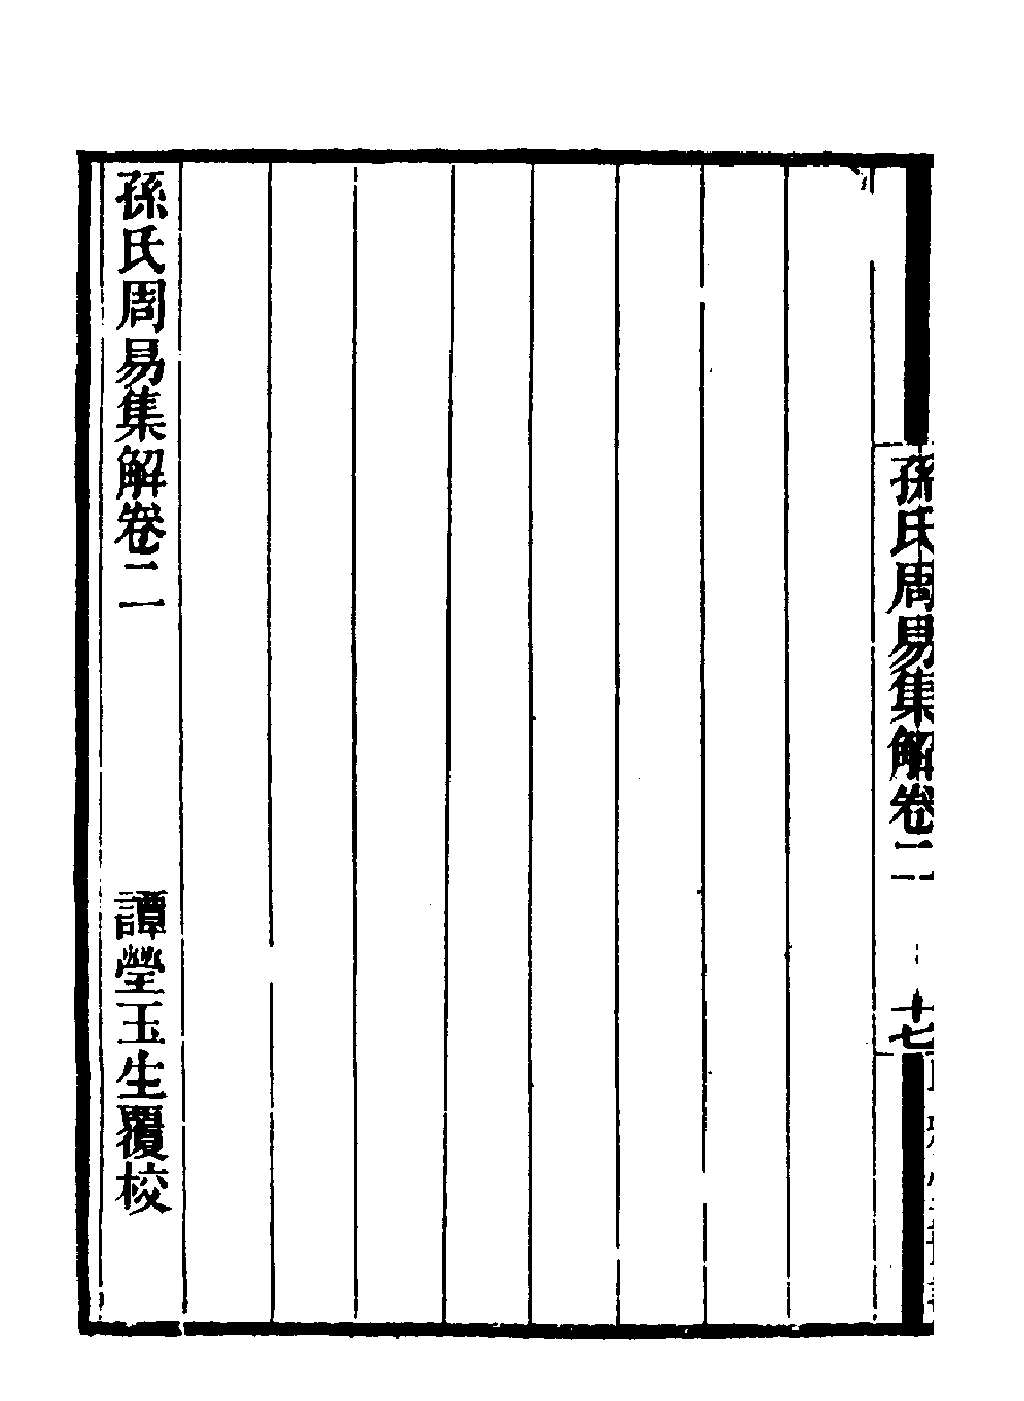 孫氏周易集解卷二
十七
孫氏周易集解卷二
譚瑩玉生覆校